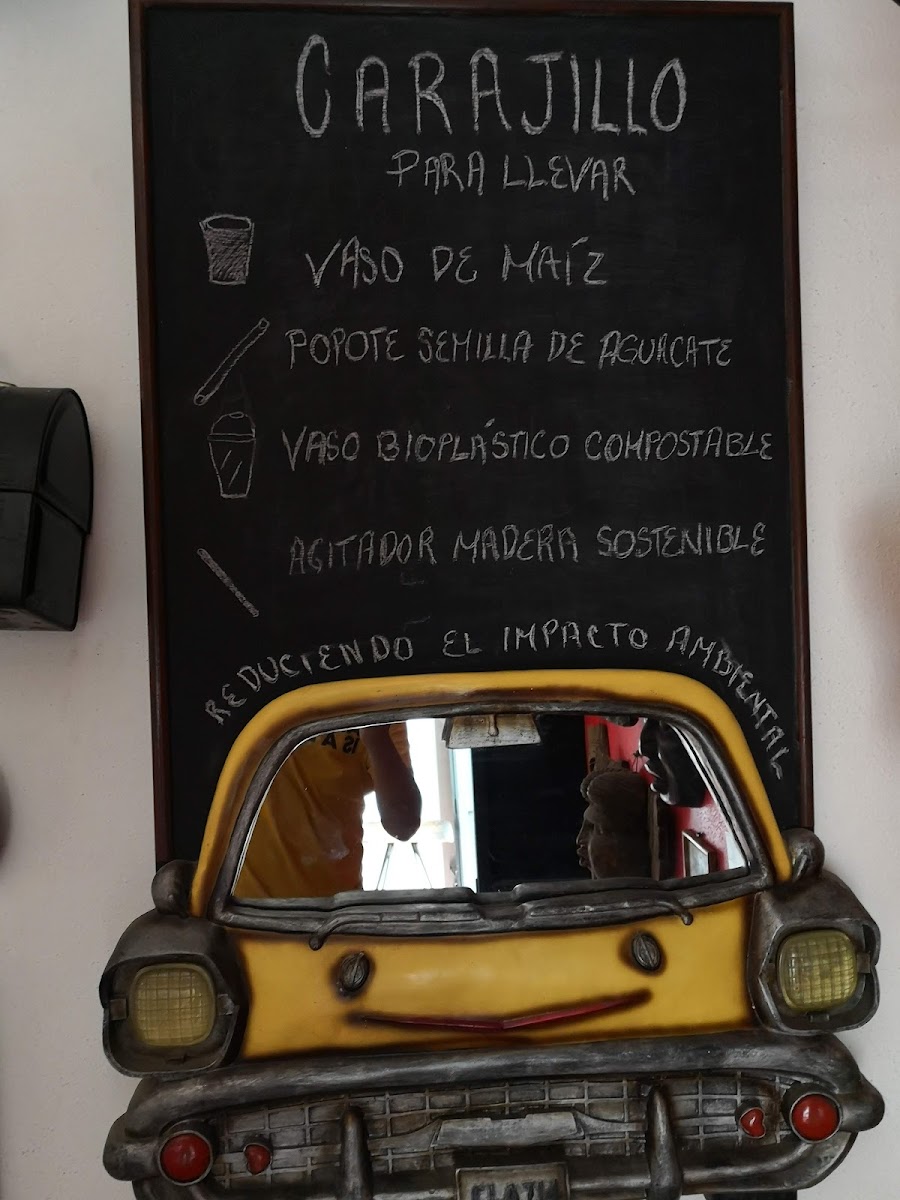 CARAJILLO
PARA LLEVAR
VASO DE MAÍZ
POPOTE SEMILLA DE AGUACATE
VASO BIOPLÁSTICO COMPOSTABLE
AGITADOR MADERA SOSTENIBLE
REDUCIENDO EL IMPACTO AMBIENTAL